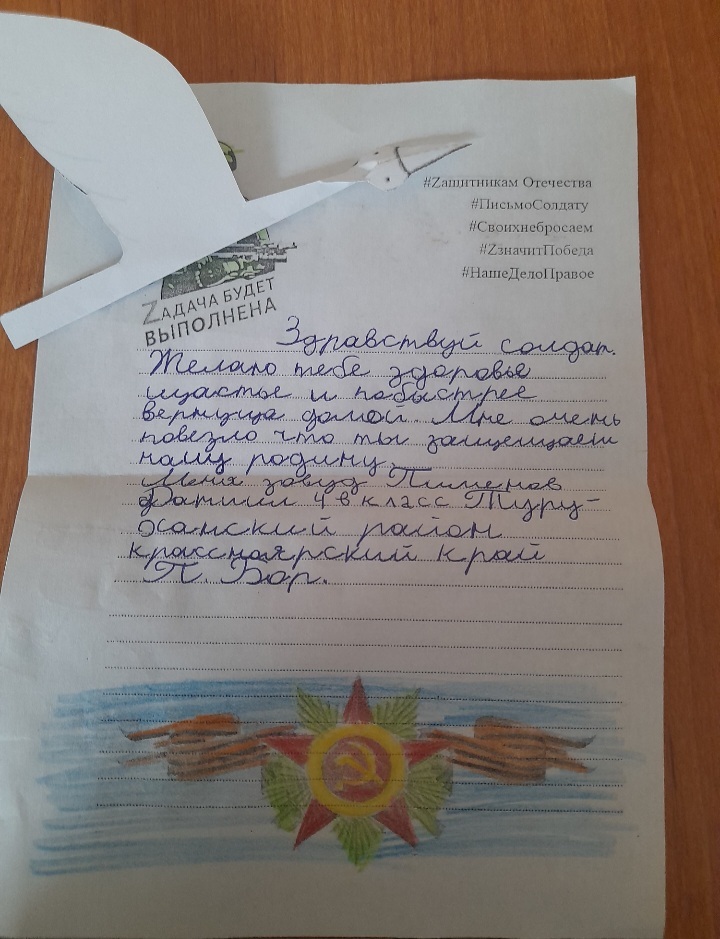 #Zащитникам Отечества
#ПисьмоСолдату
#Своихнебросаем
#ZзначитПобеда
#НашеДелоПравое
ZАДАЧА БУДЕТ
ВЫПОЛНЕНА
Здравствуй солдат.
Желаю тебе здоровье
щастье и побыстрее
вернуца домой. Мне очень
повезло что ты защищаеш
нашу родину.
Меня зовуд Пименов
Даниил 4 в класс Туру-
ханский район
красноярский край
П. Бор.